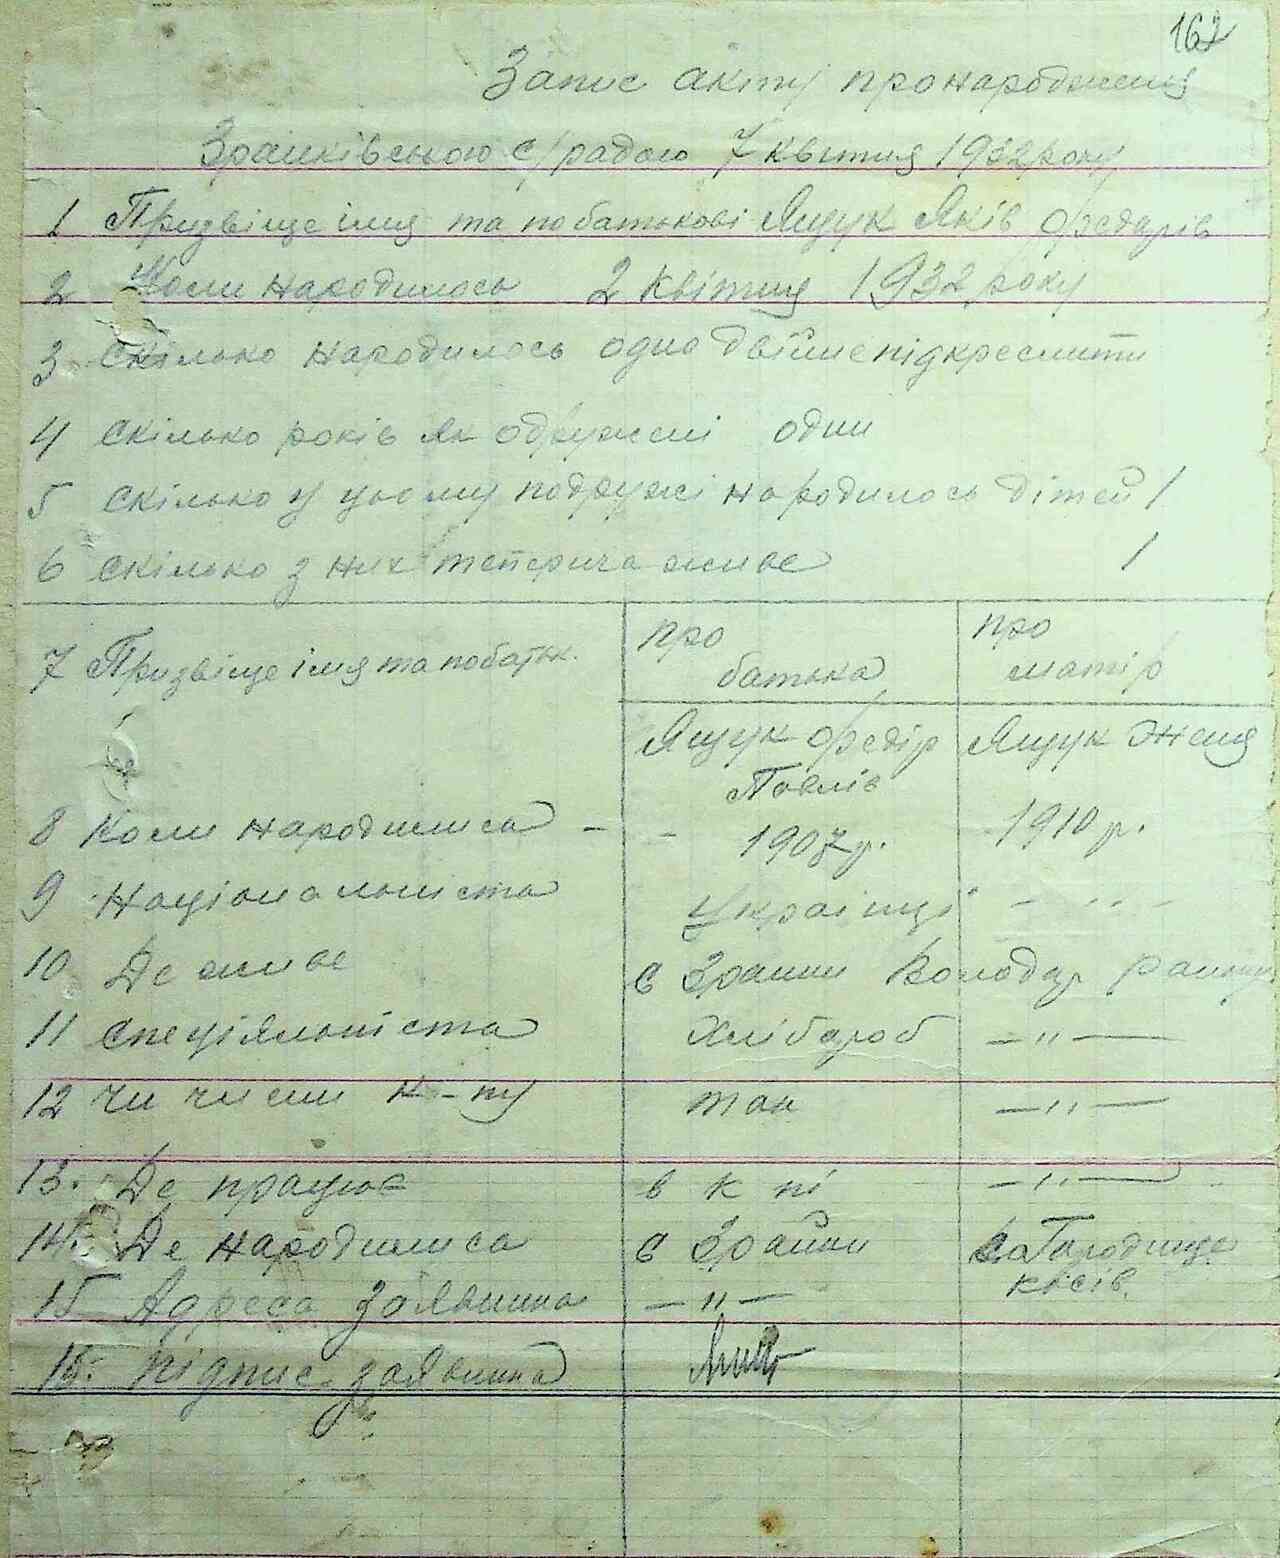 162
Запис акту про народження
Зрайківською с/радою 7 квітня 1932 року
1 Призвіще імя та по батькові Ящук Яків Федорів
2 Коли народилось 2 квітня 1932 року
3 Скілько народилось одно двійше підкреслити
4 Скілько років як одружені один
5 Скілько у цьому подружі народилось дітей 1
6 Скілько з них теперича живе 1
7 Призвіще імя та по батьк. про батька про матір
Ящук Федір Павлів Ящук Женя
8 Коли народилися - - 1907 р. 1910 р.
9 Національність українці - " -
10 Де живе с Зрайки Володар району
11 Спеціяльність Хлібороб - " -
12 Чи член к-пу так - " -
13. Де працює в к пі - " -
14. Де народилися с Зрайки с. Городище
косів.
15 Адреса заявника - " -
16. Підпис заявника